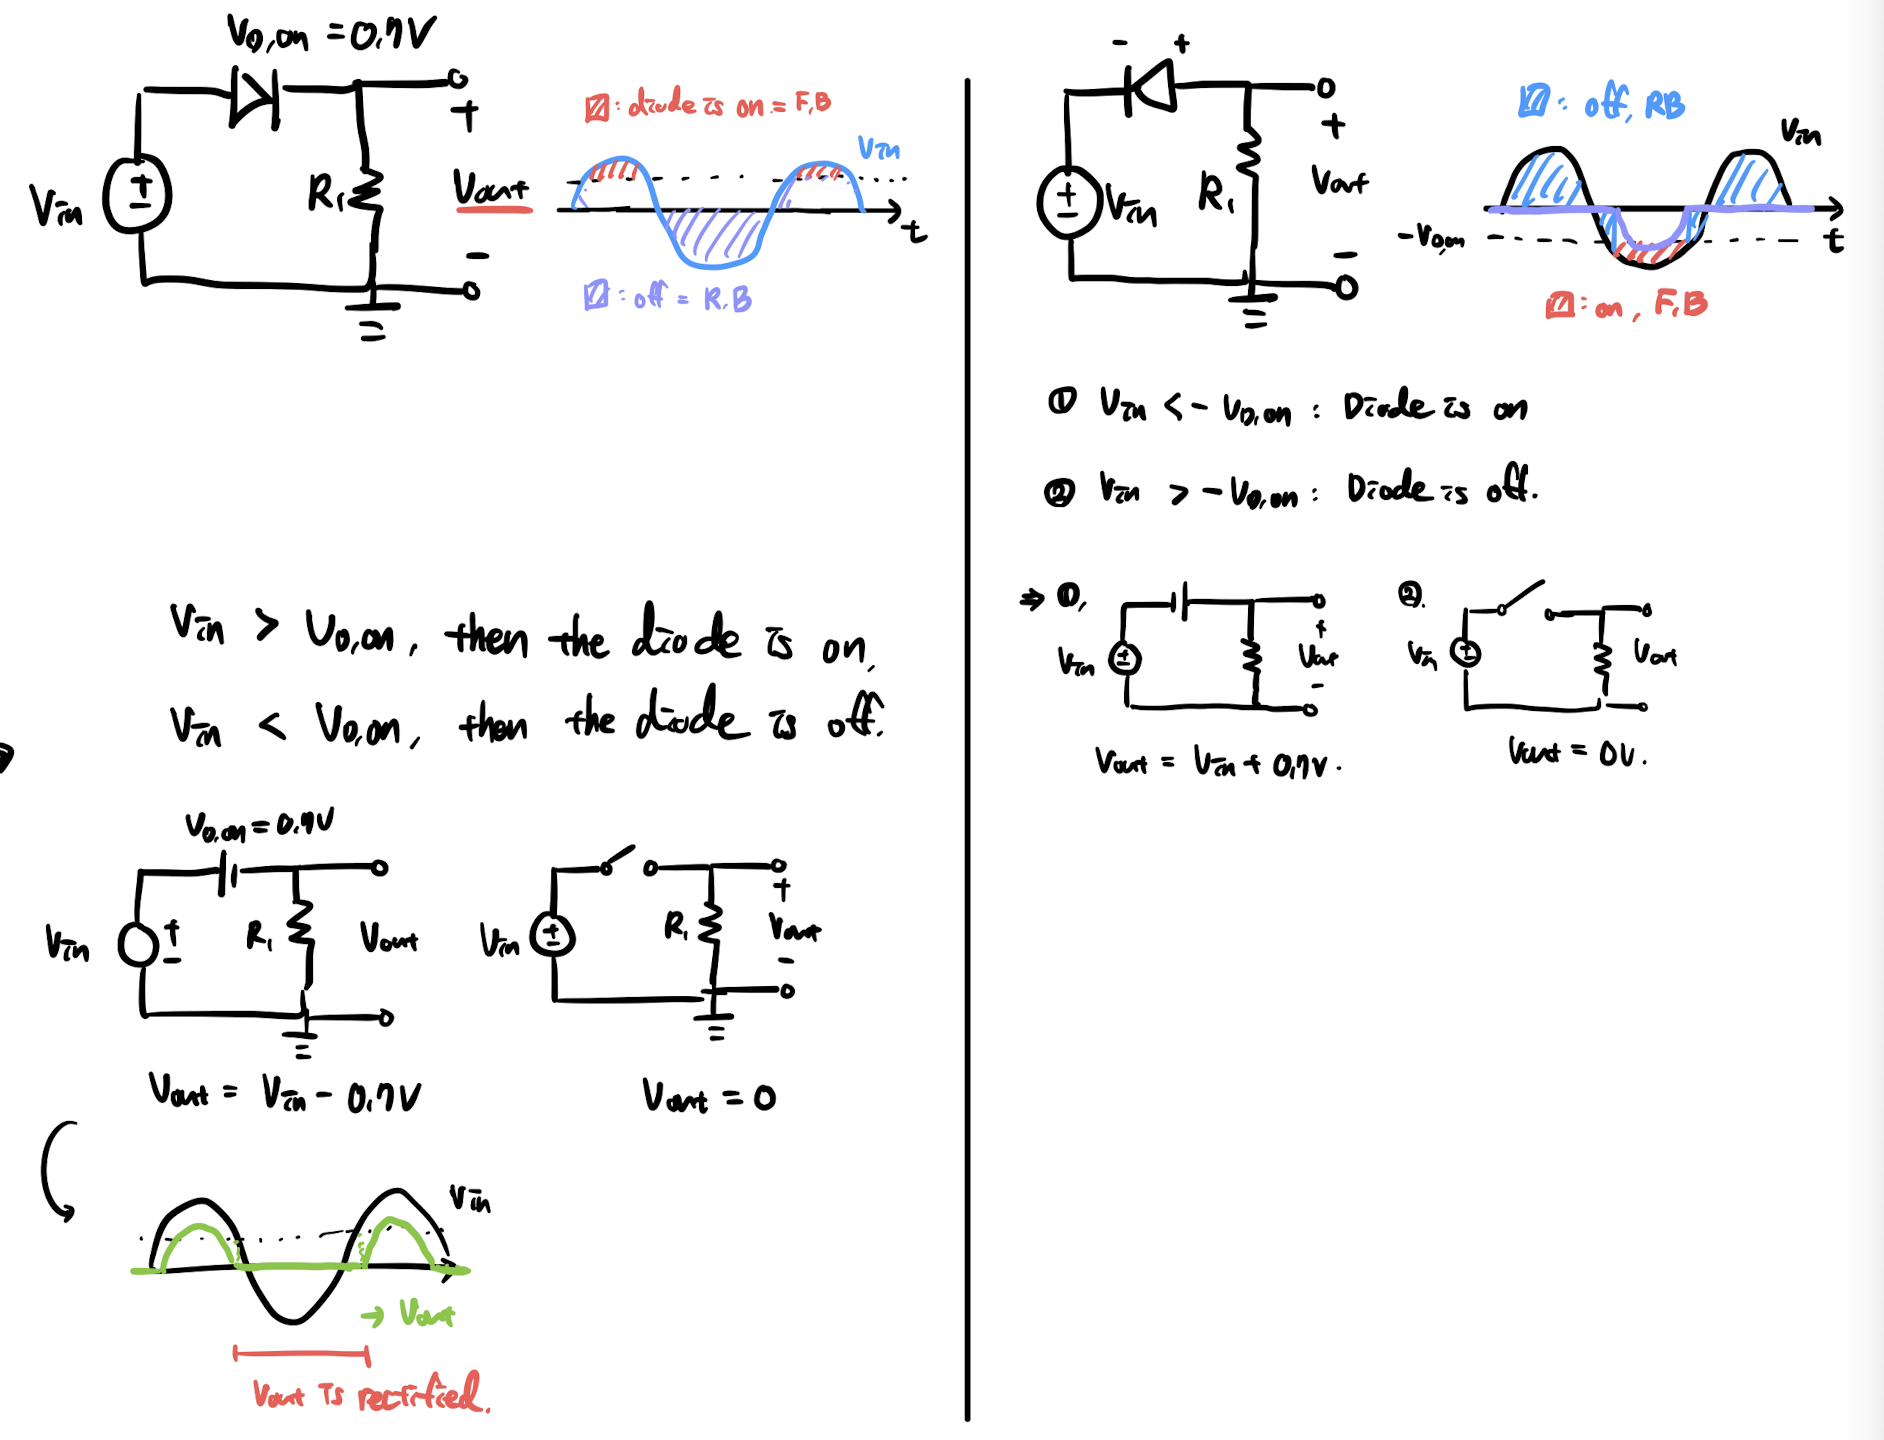 V_D,on = 0.7V
Vin
+
-
R₁
+
Vout
-
: diode is on = F.B
Vin
t
: off = R.B
Vin > V_D,on, then the diode is on.
Vin < V_D,on, then the diode is off.
V_D,on = 0.7V
Vin
+
-
R₁
Vout
Vin
+
-
R₁
+
Vout
-
Vout = Vin - 0.7V
Vout = 0
Vin
→ Vout
Vout is rectified.
- +
+
-
Vin
R₁
+
Vout
-
: off, RB
Vin
-V_D,on
t
: on, F.B
① Vin < -V_D,on : Diode is on
② Vin > -V_D,on : Diode is off.
⇒ ①.
Vin
+
-
+
Vout
-
②.
Vin
+
-
Vout
Vout = Vin + 0.7V.
Vout = 0V.